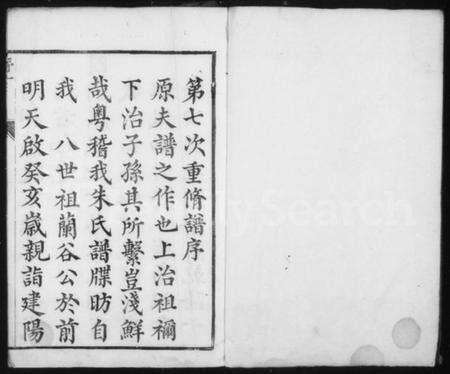 第七次重脩譜序
原夫譜之作也上治祖禰
下治子孫其所繫豈淺鮮
哉粤稽我朱氏譜牒昉自
我　八世祖蘭谷公於前
明天啟癸亥歲親詣建陽